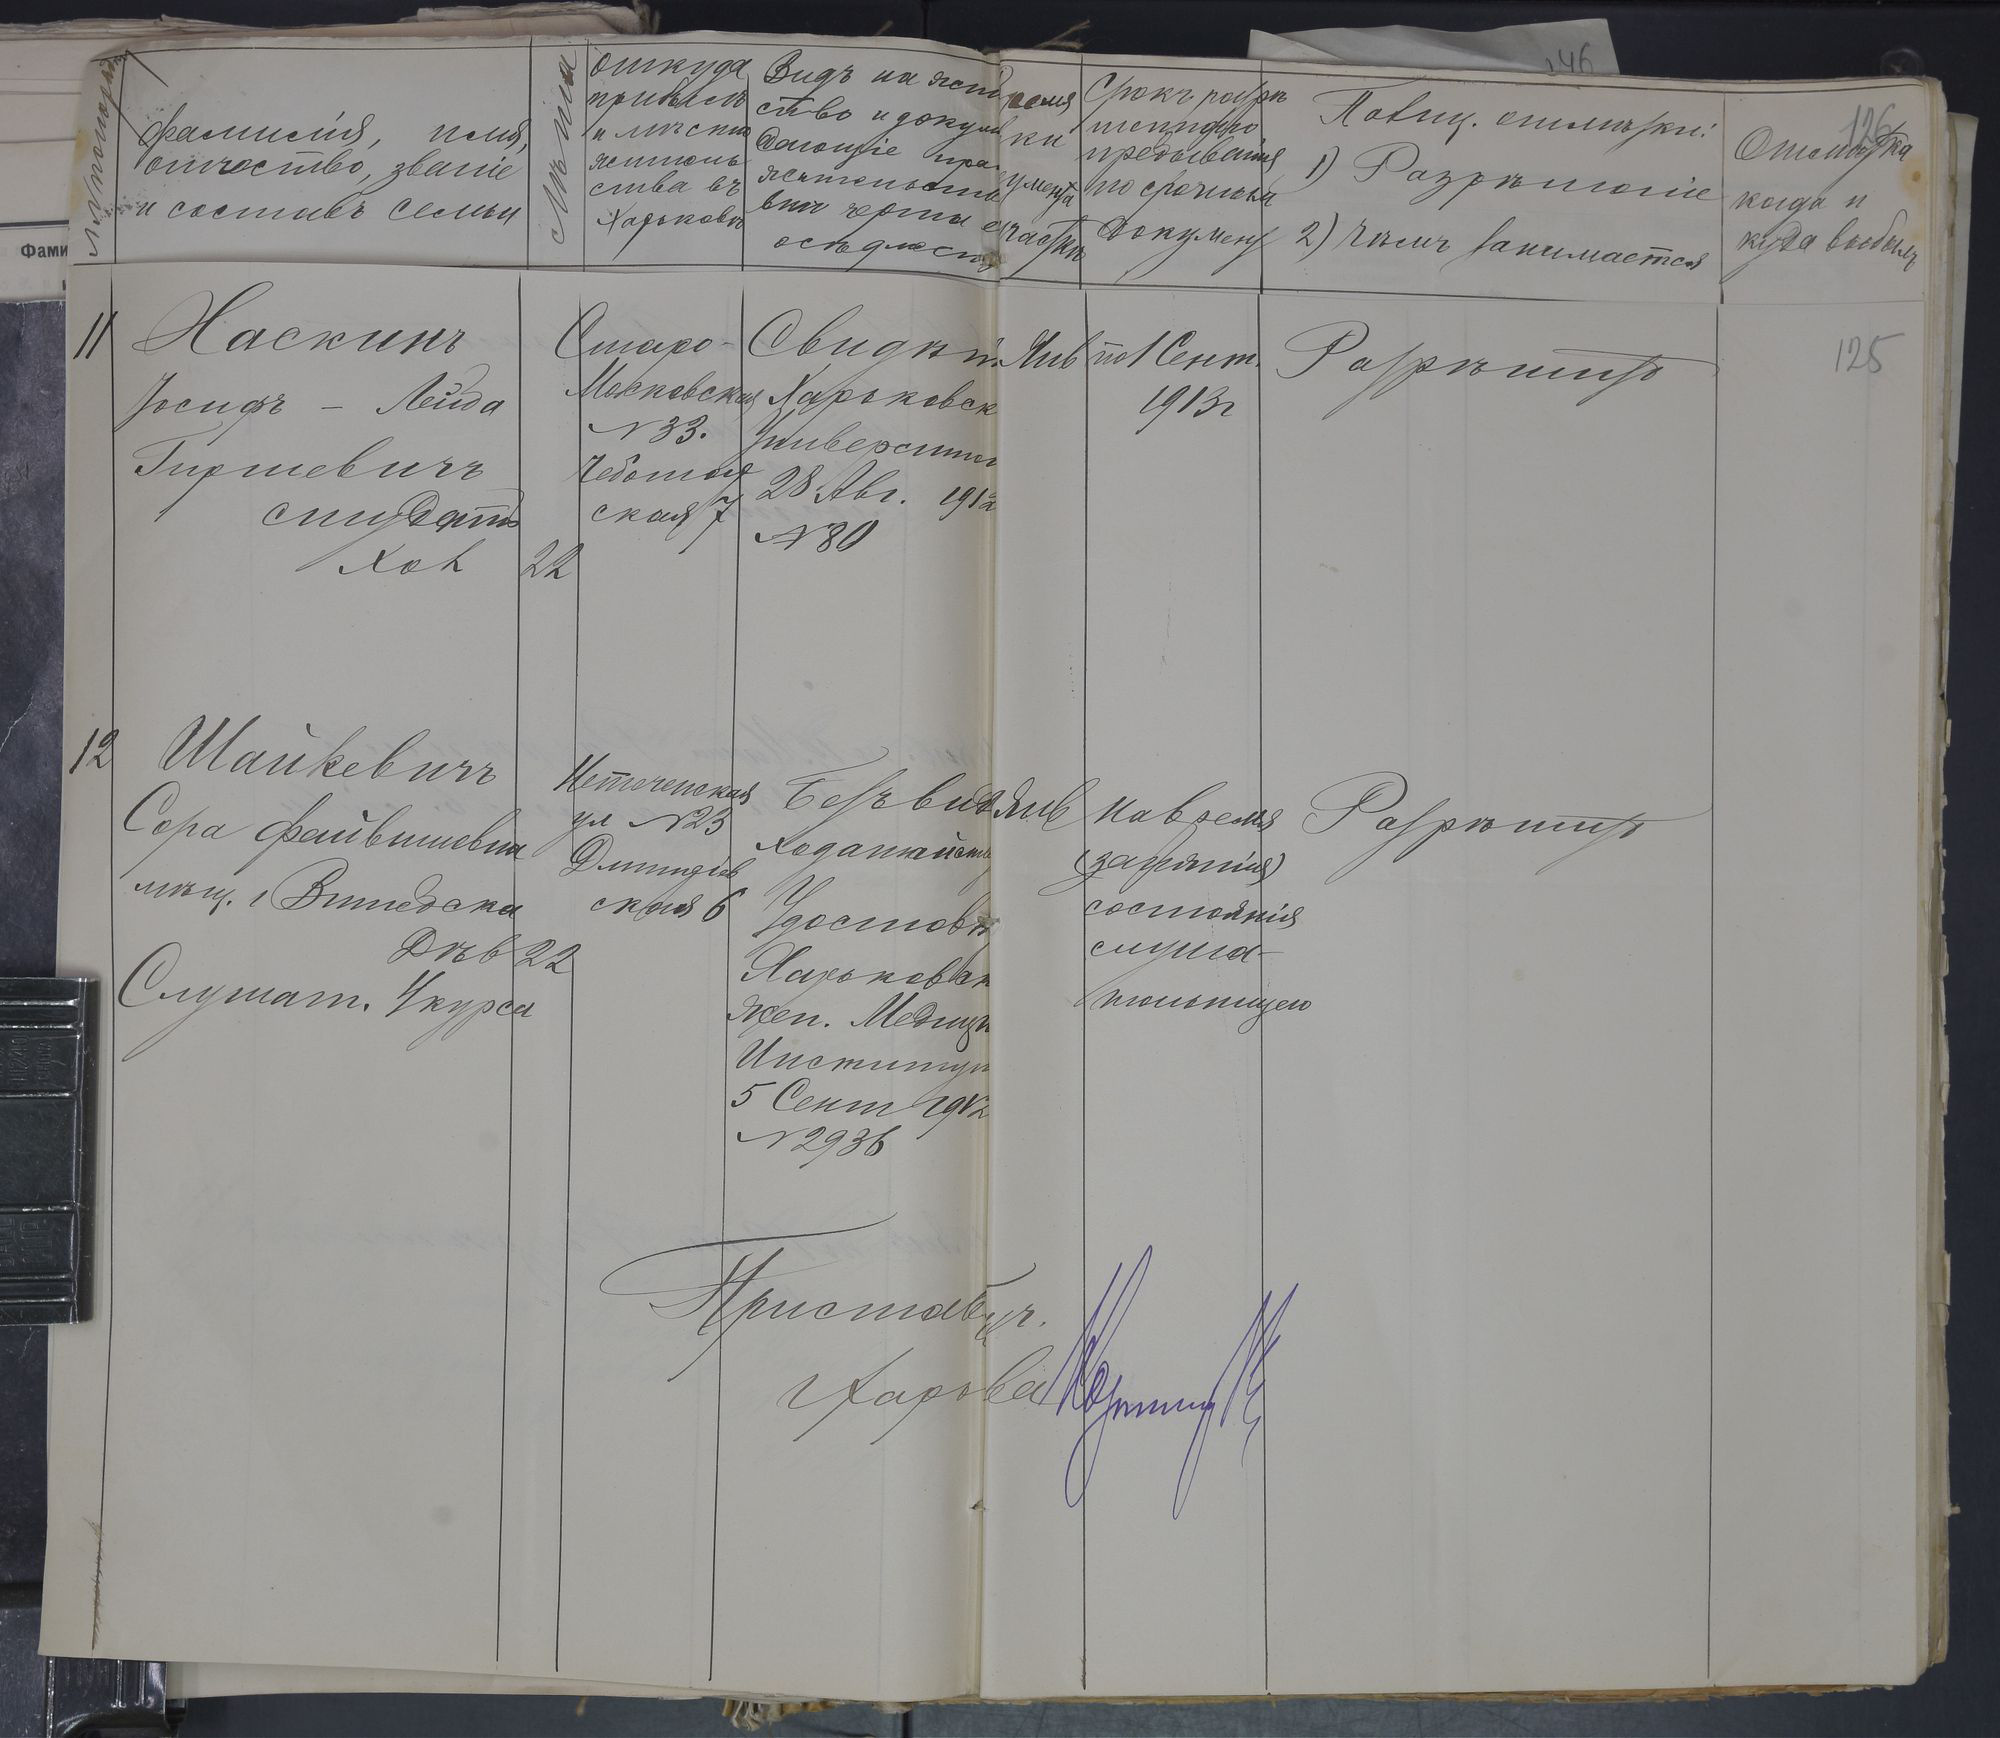 126
125
146
Фами
№ по порядку
Фамилія, имя,
отчество, званіе
и составъ семьи
Лѣта
Откуда
прибылъ
и мѣсто
жительь
ства въ
Харьковѣ
Видъ на жит
ство и докум
дающіе пра
жительства
внѣ черты о
осѣдлост
Срокъ разрѣ
шеннаго
пребыванія
по срочном
документ
Полиц. отмѣтки:
1) Разрѣшеніе
2) Чѣмъ занимается
Отмѣтка
когда и
куда выбылъ
11
Хаскинъ
Іосифъ - Лейба
Гиршевичъ
студентъ
Хол 22
Старо-
Московская
№33.
Чеботар
ская 7
Свидѣт.
Харьковск
Университ
28 Авг. 1912
№80
Янв
по 1 Сент.
1913г
Разрѣшит
12
Шайкевичъ
Сора Файвишевна
мѣщ. г Витебска
Дѣв 22
Слушат. V курса
Нетеченская
ул №23
Дмитріев
ская 6
Безъ вида
Ходатайств
Удостов
Харьковск
Жен. Медици
Институт
5 Сент 1912
№2936
Янв
на время
(занятія)
состоянія
слуша-
тельницею
Разрѣшит
Приставъ уч.
г Харькова